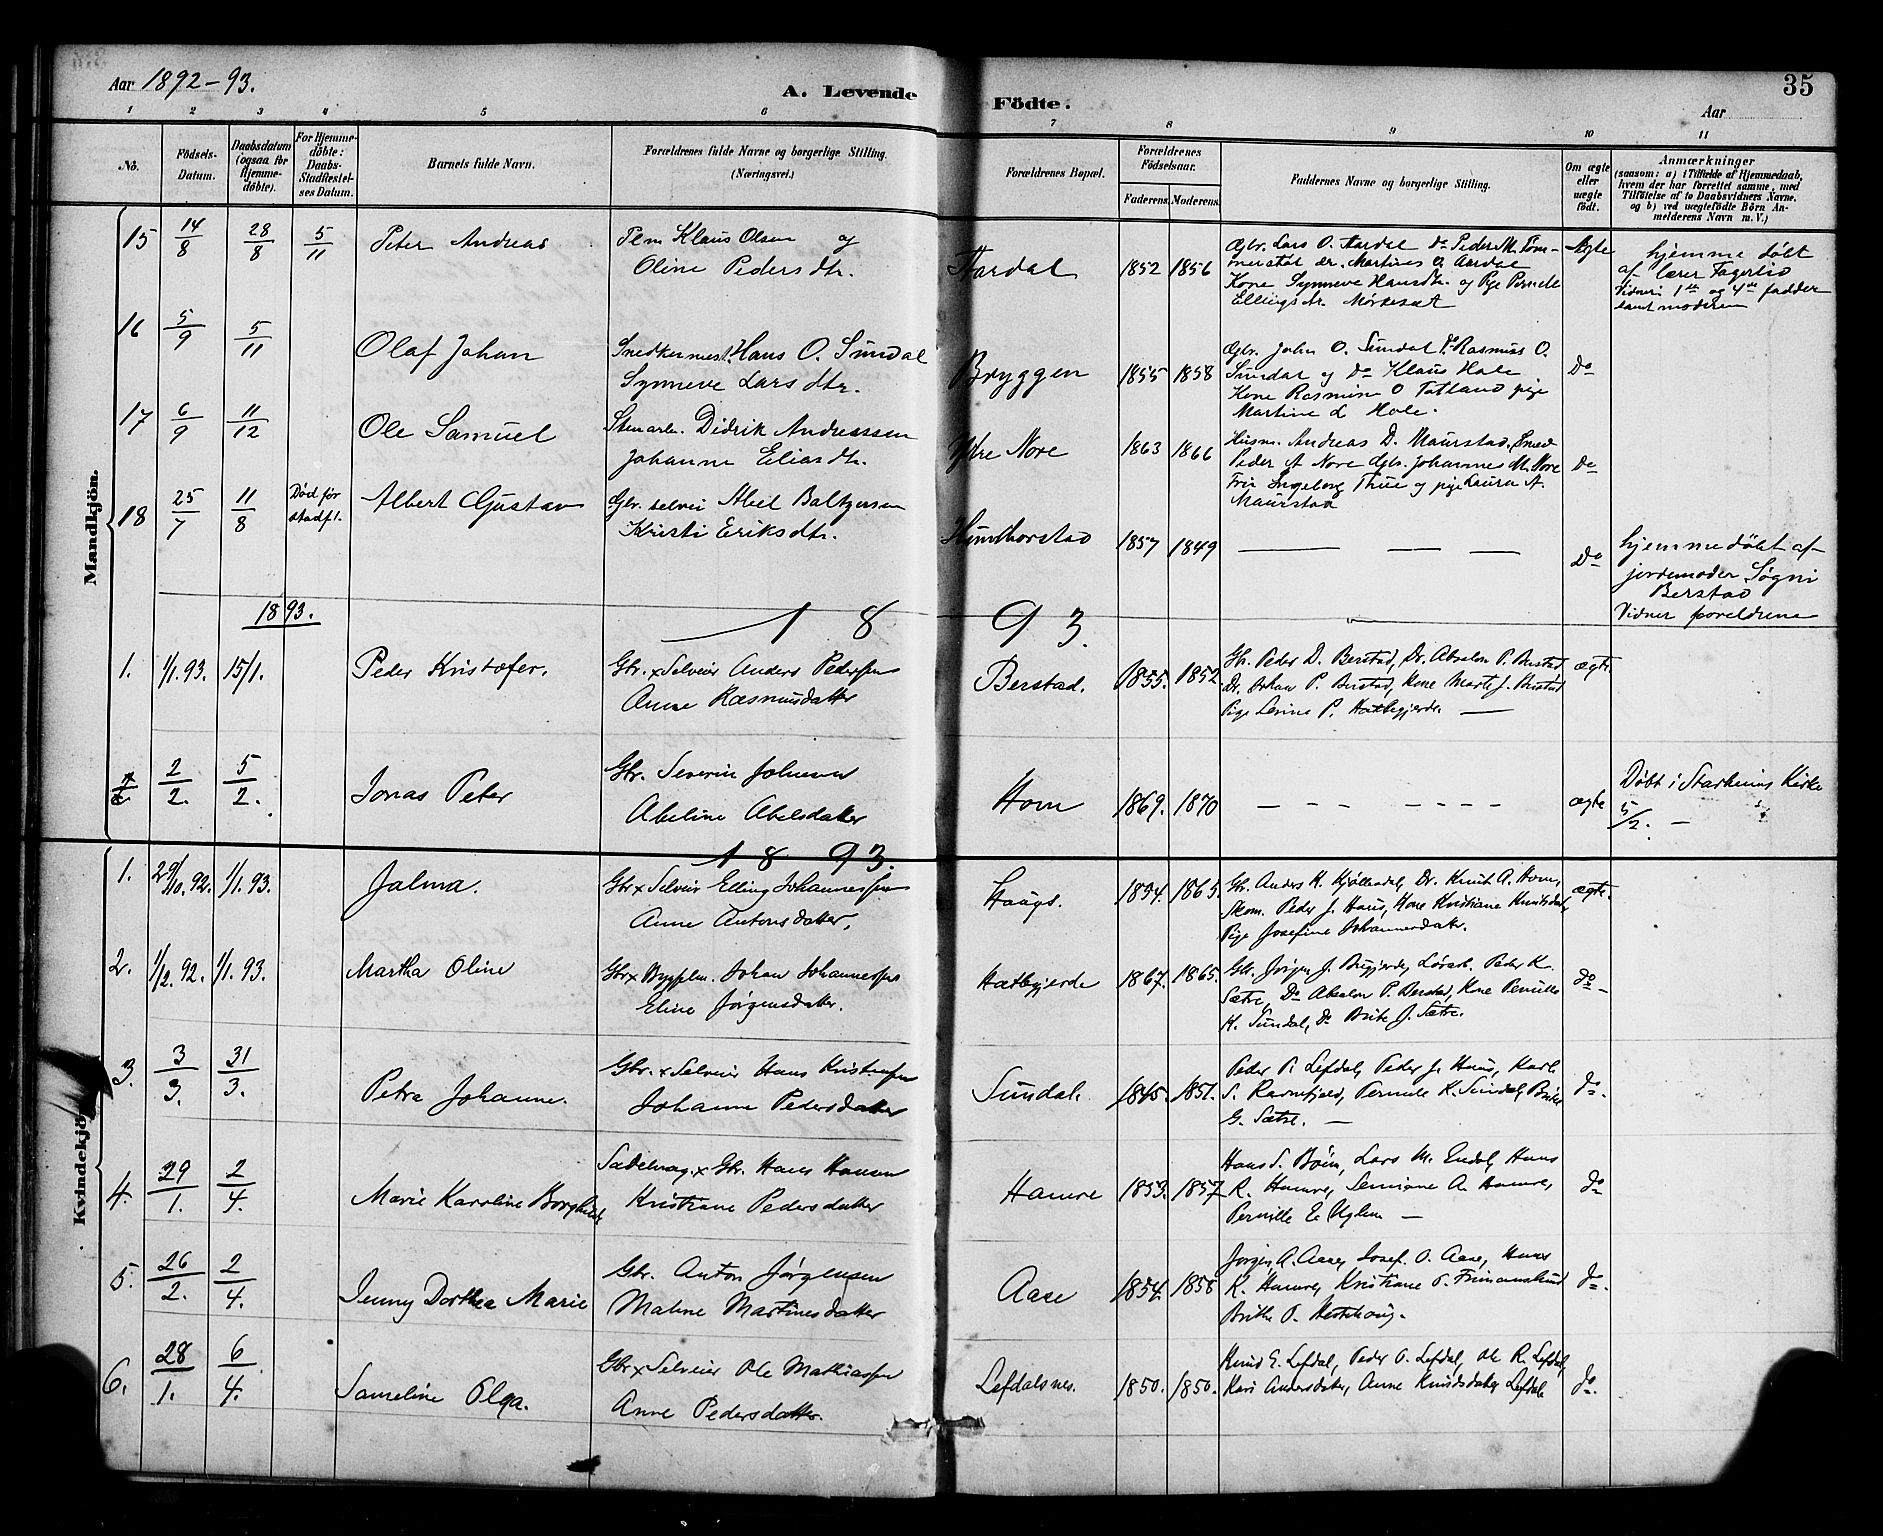 Aar 1892-93. A. Levende Födte. Aar 35
1 2 3 4 5 6 7 8 9 10 11
No. Födsels-Datum. Daabsdatum (ogsaa for Hjemme-döbte). For Hjemme-döbte: Daabs-Stadfæstel-ses Datum. Barnets fulde Navn. Forældrenes fulde Navne og borgerlige Stilling. (Næringsvei.) Forældrenes Bopæl. Forældrenes Födselsaar. Faderens. Moderens. Faddernes Navne og borgerlige Stilling. Om ægte eller uægte födt. Anmærkninger
(saasom: a) i Tilfælde af Hjemmedaab, hvem der har forrettet samme, med Tilföielse af to Daabsvidners Navne, og b) ved uægtefödte Börn An-melderens Navn m. V.)
Mandkjön.
15 14/8 28/8 5/11 Peter Andreas Klaus Olsen og Aardal 1852 1856 Gbr. Lars O. Aardal do Peder M. Tom- Ægte hjemmedøbt
Oline Pedersdtr. merstøl dr. Martines O Aardal af lærer Fagerlid
Kone Synneve Hansdtr. og Pige Pernele Vidner: 1ste og 4de fadder
Ellingsdtr. Mørkesæt samt moderen
16 5/9 5/11 Olaf Johan Snedkermest. Hans O. Sundal Bryggen 1855 1858 Gbr. John O. Sundal Do Rasmus O. Do
Synneve Larsdtr. Sundal og do Klaus Hole
Kone Rasmine O Totland pige
Martine L Hole.
17 6/9 11/12 Ole Samuel Stenarb. Didrik Andreassen Ytre Nore 1863 1866 Husm. Andreas D. Maurstad, Smed Do
Johanne Eliasdtr. Peder A Nore Gbr. Johannes M. Nore
Fru Ingeborg Thue og pige Laura A.
Maurstad
18 25/7 11/8 Død før stadf. Albert Gustav Gbr. selvei Abel Baltzersen Hjemthorstad 1857 1849 Do hjemmedøbt af
Kristi Eriksdtr. jordemoder Søgni
Berstad
1893. 1893. Vidner foreldrene
1. 1/1.93. 15/1. Peder Kristofer. Gbr. x Selveier Anders Pedersen Berstad. 1855. 1852. Gbr. Peder D. Berstad, Do. Absalon P. Berstad ægte.
Anne Rasmusdatter Do. Johan P. Berstad, Kone Marte J. Berstad
Pige Levine P. Hatlegjerde.
2. 2/2. 5/2. Jonas Peter Gbr. Severin Johnsen Hom 1869. 1870 ægte Døbt i Starheims Kirke
Abeline Abelsdatter 5/2.
1893.
Kvindekjön.
1. 29/10.92. 1/1.93. Jalma. Gbr x Selveier Elling Johannessen Haugs. 1834. 1865. Gbr. Anders K. Kjøllesdal, Do. Knut A. Hom, ægte.
Anne Antonsdatter. Skom. Peder J. Haus, Kone Kristiane Knudsdatter
Pige Josefine Johannesdatter.
2. 1/12.92. 1/1.93. Martha Oline Gbr x Bygselm. Johan Johannessen Hatlegjerde 1867. 1865. Gbr. Jørgen J. Bugjerde, Lørarb. Peder K. do
Eline Jørgensdatter. Sætre, Do Absalon P. Berstad, Kone Pernille
K. Sundal, Do Brite J. Sætre.
3. 3/3. 31/3. Petra Johanne. Gbr. x Selveier Hans Kristensen Sundal. 1845. 1851. Peder P. Lefdal, Peder J. Haus, Karl do.
Johanne Pedersdatter S. Ravnefjeld, Pernele K. Sundal, Brithe
G. Sætre.
4. 29/1. 2/4. Marie Karoline Borghild Sadelmag. x Gbr. Hans Hansen Hamre 1853. 1857 Hans S. Bøen, Lars M. Endal, Hans do
Kristiane Pedersdatter R. Hamre, Semiane A. Hamre,
Pernille E. Myklen
5. 26/2. 2/4. Jenny Dorthea Marie Gbr. Anton Jørgensen Aase 1854. 1858 Jørgen A. Aase, Josef. O. Aase, Hans do.
Maline Martinusdatter R. Hamre, Kristiane O. Frimannslund
Brithe O. Hestehaug.
6. 28/1. 6/4. Sameline Olga. Gbr x Selveier Ole Mathiassen Lefdalsnes. 1850. 1850. Knud E. Lefdal, Peder O. Lefdal, Ole R. Lefdal, do.
Anne Pedersdatter. Kari Andersdatter, Anne Knudsdatter Lefdal